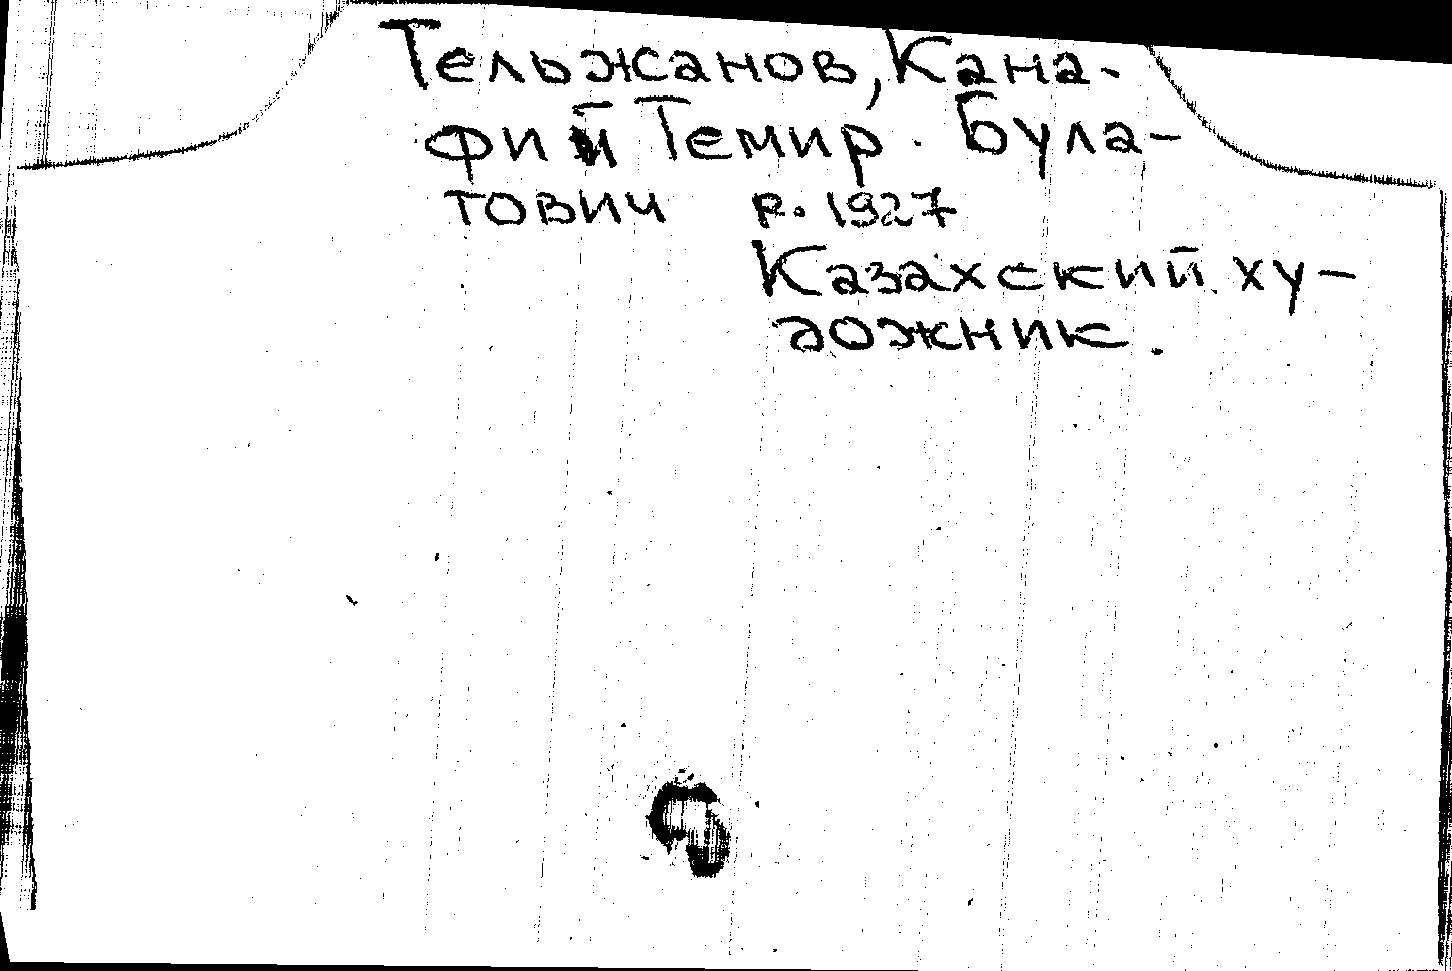 Тельжанов, Кана-
фий Темир. Була-
тович р. 1927
Казахский ху-
дожник.